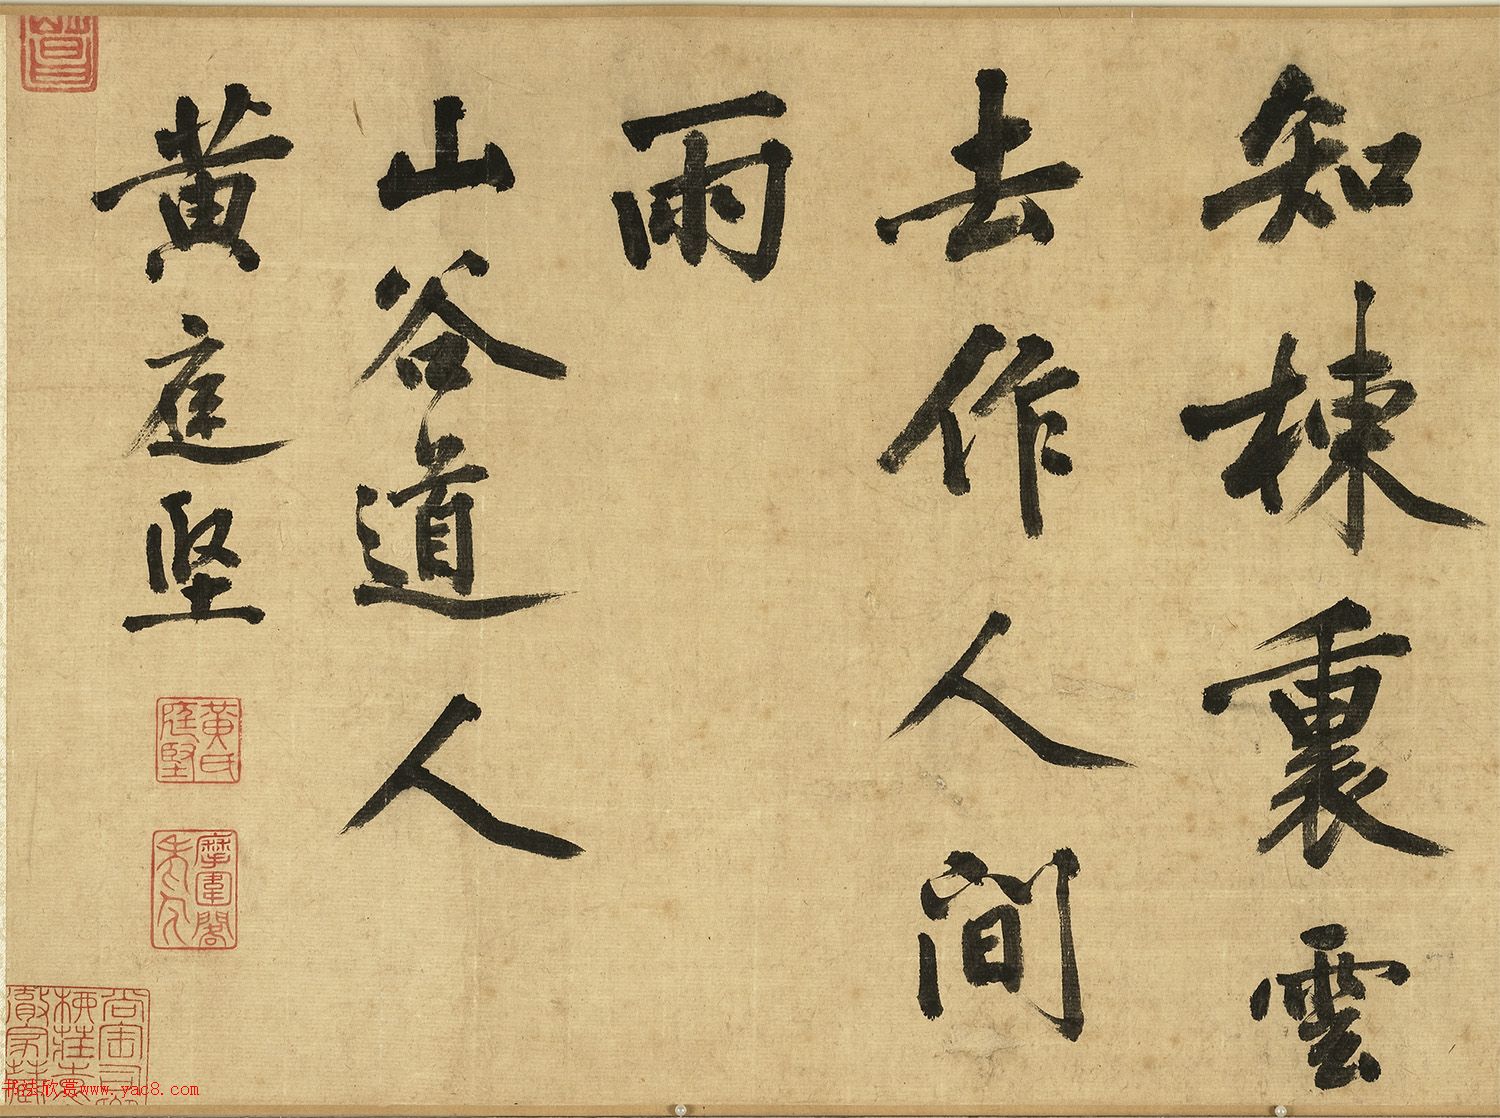 知棟裏雲
去作人間
雨
山谷道人
黄庭堅
黄氏庭堅
书法欣赏www.yac8.com